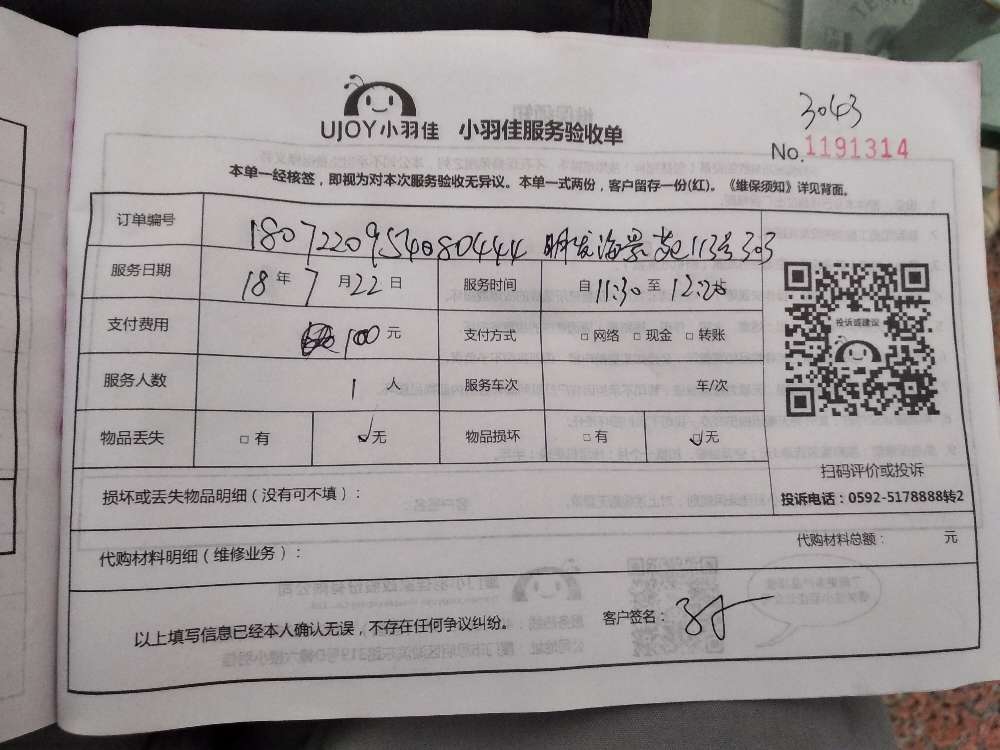 3043
UJOY小羽佳 小羽佳服务验收单
No.1191314
本单一经核签，即视为对本次服务验收无异议。本单一式两份，客户留存一份(红)。《维保须知》详见背面。
订单编号 1807220954080444 明发海景苑113号303
服务日期 18年7月22日 服务时间 自11:30至12:25
支付费用 100元 支付方式 □网络 □现金 □转账
服务人数 1人 服务车次 车/次
物品丢失 □有 ☑无 物品损坏 □有 ☑无
投诉或建议
扫码评价或投诉
投诉电话：0592-5178888转2
损坏或丢失物品明细（没有可不填）：
代购材料明细（维修业务）： 代购材料总额： 元
以上填写信息已经本人确认无误，不存在任何争议纠纷。 客户签名：